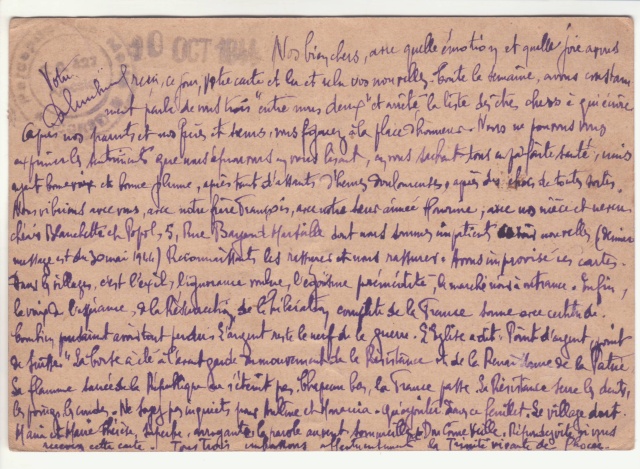 10 OCT 1944
Nos bien chers, avec quelle émotion et quelle joie avons
Votre
reçu, ce jour, votre carte et lu et relu vos nouvelles. Toute la semaine, avons constam
ment parlé de vous trois "entre nous deux" et arrêté la liste des êtres chers à qui écrire
Après nos parents et nos frères et sœurs, vous figurez à la place d'honneur. Nous ne pouvons vous
exprimer les sentiments que nous éprouvons en vous lisant, en vous sachant tous en parfaite santé, mais
ayant bonne voix et bonne plume, après tant d'assauts d'heures douloureuses, après des chocs de toutes sortes.
Nous vibrions avec vous, avec notre frère François, avec notre sœur aimée Honorine, avec nos nièce et neveu
chéris Blanchette et Popol, 5, Rue Bayard Marseille dont nous sommes impatients avoir nouvelles (dernier
message est du 30 mai 1944) Reconnaissants les rassurer et nous rassurer. Avons improvisé ces cartes.
Dans les villages, c'est l'exil, l'ignorance voulue, l'égoïsme prémédité, le marché noir à outrance. Enfin,
la voix de l'espérance, de la Résurrection, de la Libération complète de la France sonne avec certitude.
Combien pensaient avoir tout perdu. L'argent reste le nerf de la guerre. L'Eglise a dit: "Point d'argent, point
de" La Corse a été à l'avant garde du mouvement de la Résistance et de la Renaissance de la Patrie
La flamme sacrée de la République ne s'éteint pas. Chapeau bas, la France passe. La Résistance serre les dents,
les poings. Ne soyez pas inquiets, pour et. Qu'ajouter dans ce feuillet. Le village dort.
Marie et Marie Thérèse, superbe, la parole. Réponse vite si vous
recevez cette carte. Tous trois la Trinité vivante de